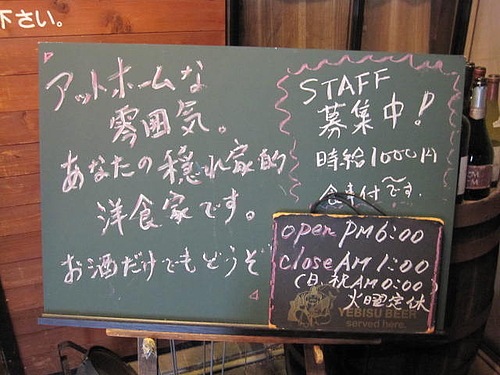 下さい。
アットホームな
雰囲気。
あなたの隠れ家的
洋食家です。
お酒だけでもどうぞ
STAFF
募集中!
時給1000円
食事付です。
open PM6:00
close AM1:00
(日、祝AM0:00)
火曜定休
YEBISU BEER
served here.